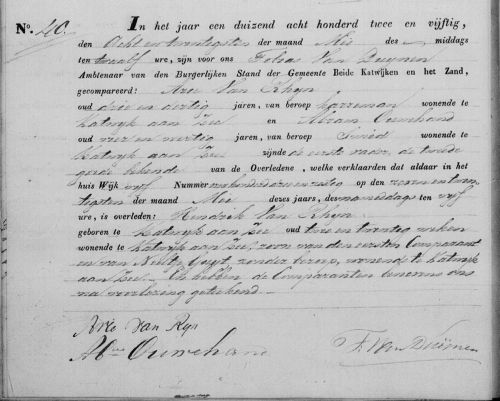 N°. 40.
In het jaar een duizend acht honderd twee en vijftig,
den Acht en twentigsten der maand Mei des middags
ten twaalf ure, zijn voor ons Fobias Van Duijnen
Ambtenaar van den Burgerlijken Stand der Gemeente Beide Katwijken en het Zand,
gecompareerd: Arie Van Rhyn
oud drie en dertig jaren, van beroep karreman wonende te
Katwyk aan Zee en Abram Ouwehand
oud vier en veertig jaren, van beroep Smid wonende te
Katwyk aan Zee zijnde de eerste vader, de tweede
goede bekende van de Overledene, welke verklaarden dat aldaar in het
huis Wijk vyf Nummer en zestig op den zeven en twin-
tigsten der maand Mei dezes jaars, des namiddags ten vyf
ure, is overleden: Hendrik Van Rhyn
geboren te Katwyk aan Zee oud twee en twintig weken
wonende te Katwyk aan Zee, zoon van den eersten Comparant
en van Neeltje zonder beroep, wonende te Katwyk
aan Zee. En hebben de Comparanten benevens ons
na voorlezing geteekend.
Arie van Ryn
Abm Ouwehand
T. Van Duijnen